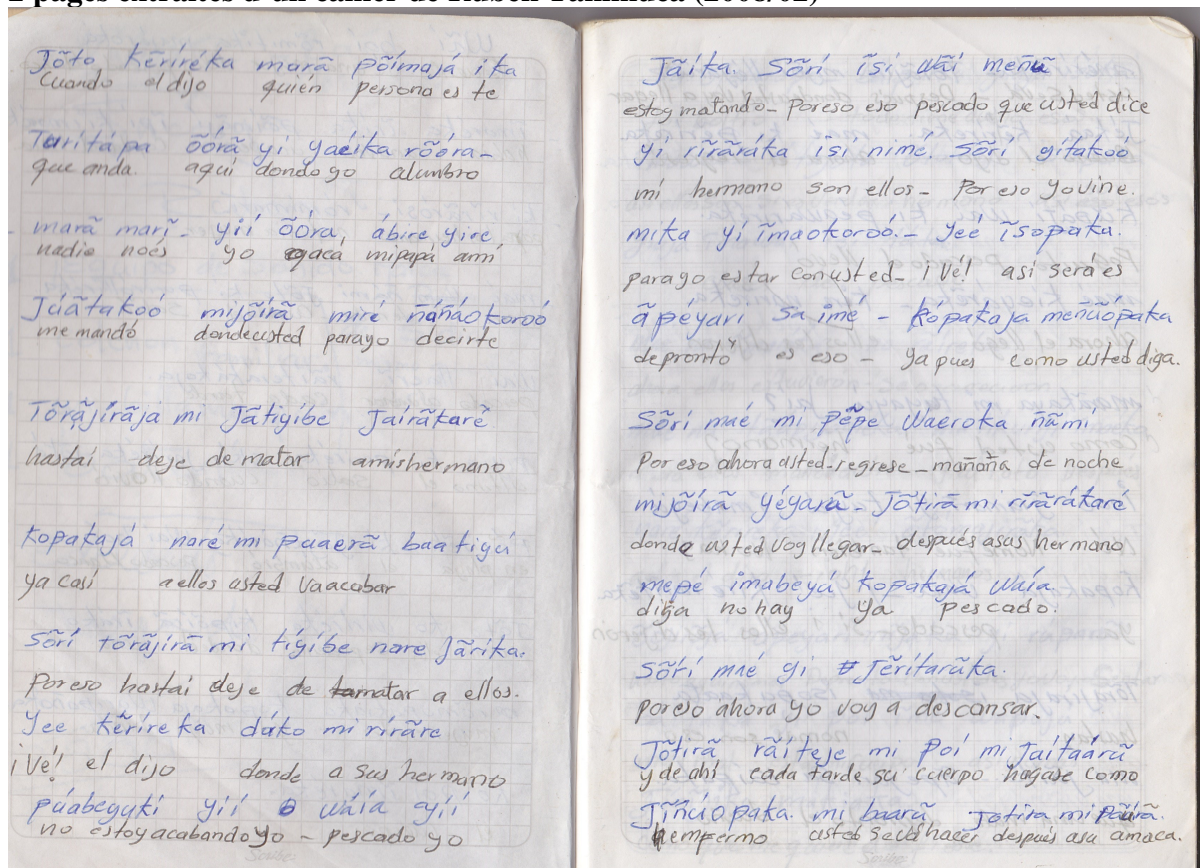 2 pages extraites d'un cahier de Ruben Tanimuca (2008/02)
Jõto kẽríréka marã põímajá ika
Cuando el dijo quién persona es te
Taritápa õõrã yi yaéika rõõra-
que anda. aquí dondo yo alumbro
marã marĩ- yií õõra, ábire yire
nadie noés yo acá mipapá amí
Júãtakoó mijõírã miré ñáñáokoroó
me mandó dondeusted parayo decirte
Tõrãjírãja mi Jãtiyíbe Jaírãtarẽ
hastaí deje de matar amishermano
kopakajá naré mi puaerã baatiyú
ya casí aellos usted vaacabar
Sõrí tõrãjirã mi tíyíbe nare Jãríka.
Poreso hastaí deje de matar a ellos.
Yee kẽríreka dáko mi rírãre
¡Vé! el dijo donde a sus hermano
púabeyukí yií wáia yií
no estoyacabandoyo - pescado yo
Jãíka. Sõrí ĩsi wãi menũ
estoy matando- Poreso eso pescado que usted dice
yi rĩrãráka isi nimé. Sõrí yitakoó
mí hermano son ellos- Por eso yovine.
mika yi ĩmaokoroó.- Yeé ĩsopaka.
parayo estar conusted- ¡Vé! así será es
ã péyari Sa imé - kópakaja meñúópaka
depronto es eso - ya pues como usted diga.
Sõrí maé mi pẽpe waeroka ñãmi
Por eso ahora usted-regrese-mañaña de noche
mijõírã yéyarũ- Jõtirã mi rĩrãrákaré
donde usted voy llegar- después asus hermano
mepé imabeyú kopakajá waía
diga no hay ya pescado.
Sõrí maé yi Jẽrítarũka.
poreso ahora yo voy a descansar.
Jõtirã rãíteje mi Poí mi Jaítaárũ
y de ahí cada tarde su cuerpo hagase como
Jĩñúopaka. mi baarũ Jotira mi pãũrã.
empermo usted sevá hacer después asu amaca.